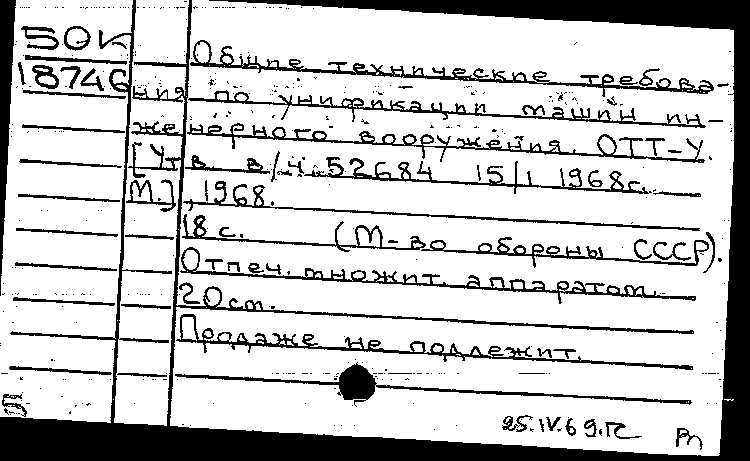 50К
18746
Общие технические требова-
ния по унификации машин ин-
женерного вооружения. ОТТ-У.
[Утв. в/ч 52684 15/I 1968г.
М.], 1968.
18 с. (М-во обороны СССР).
Отпеч. множит. аппаратом.
20см.
Продаже не подлежит.
25.IV.69.